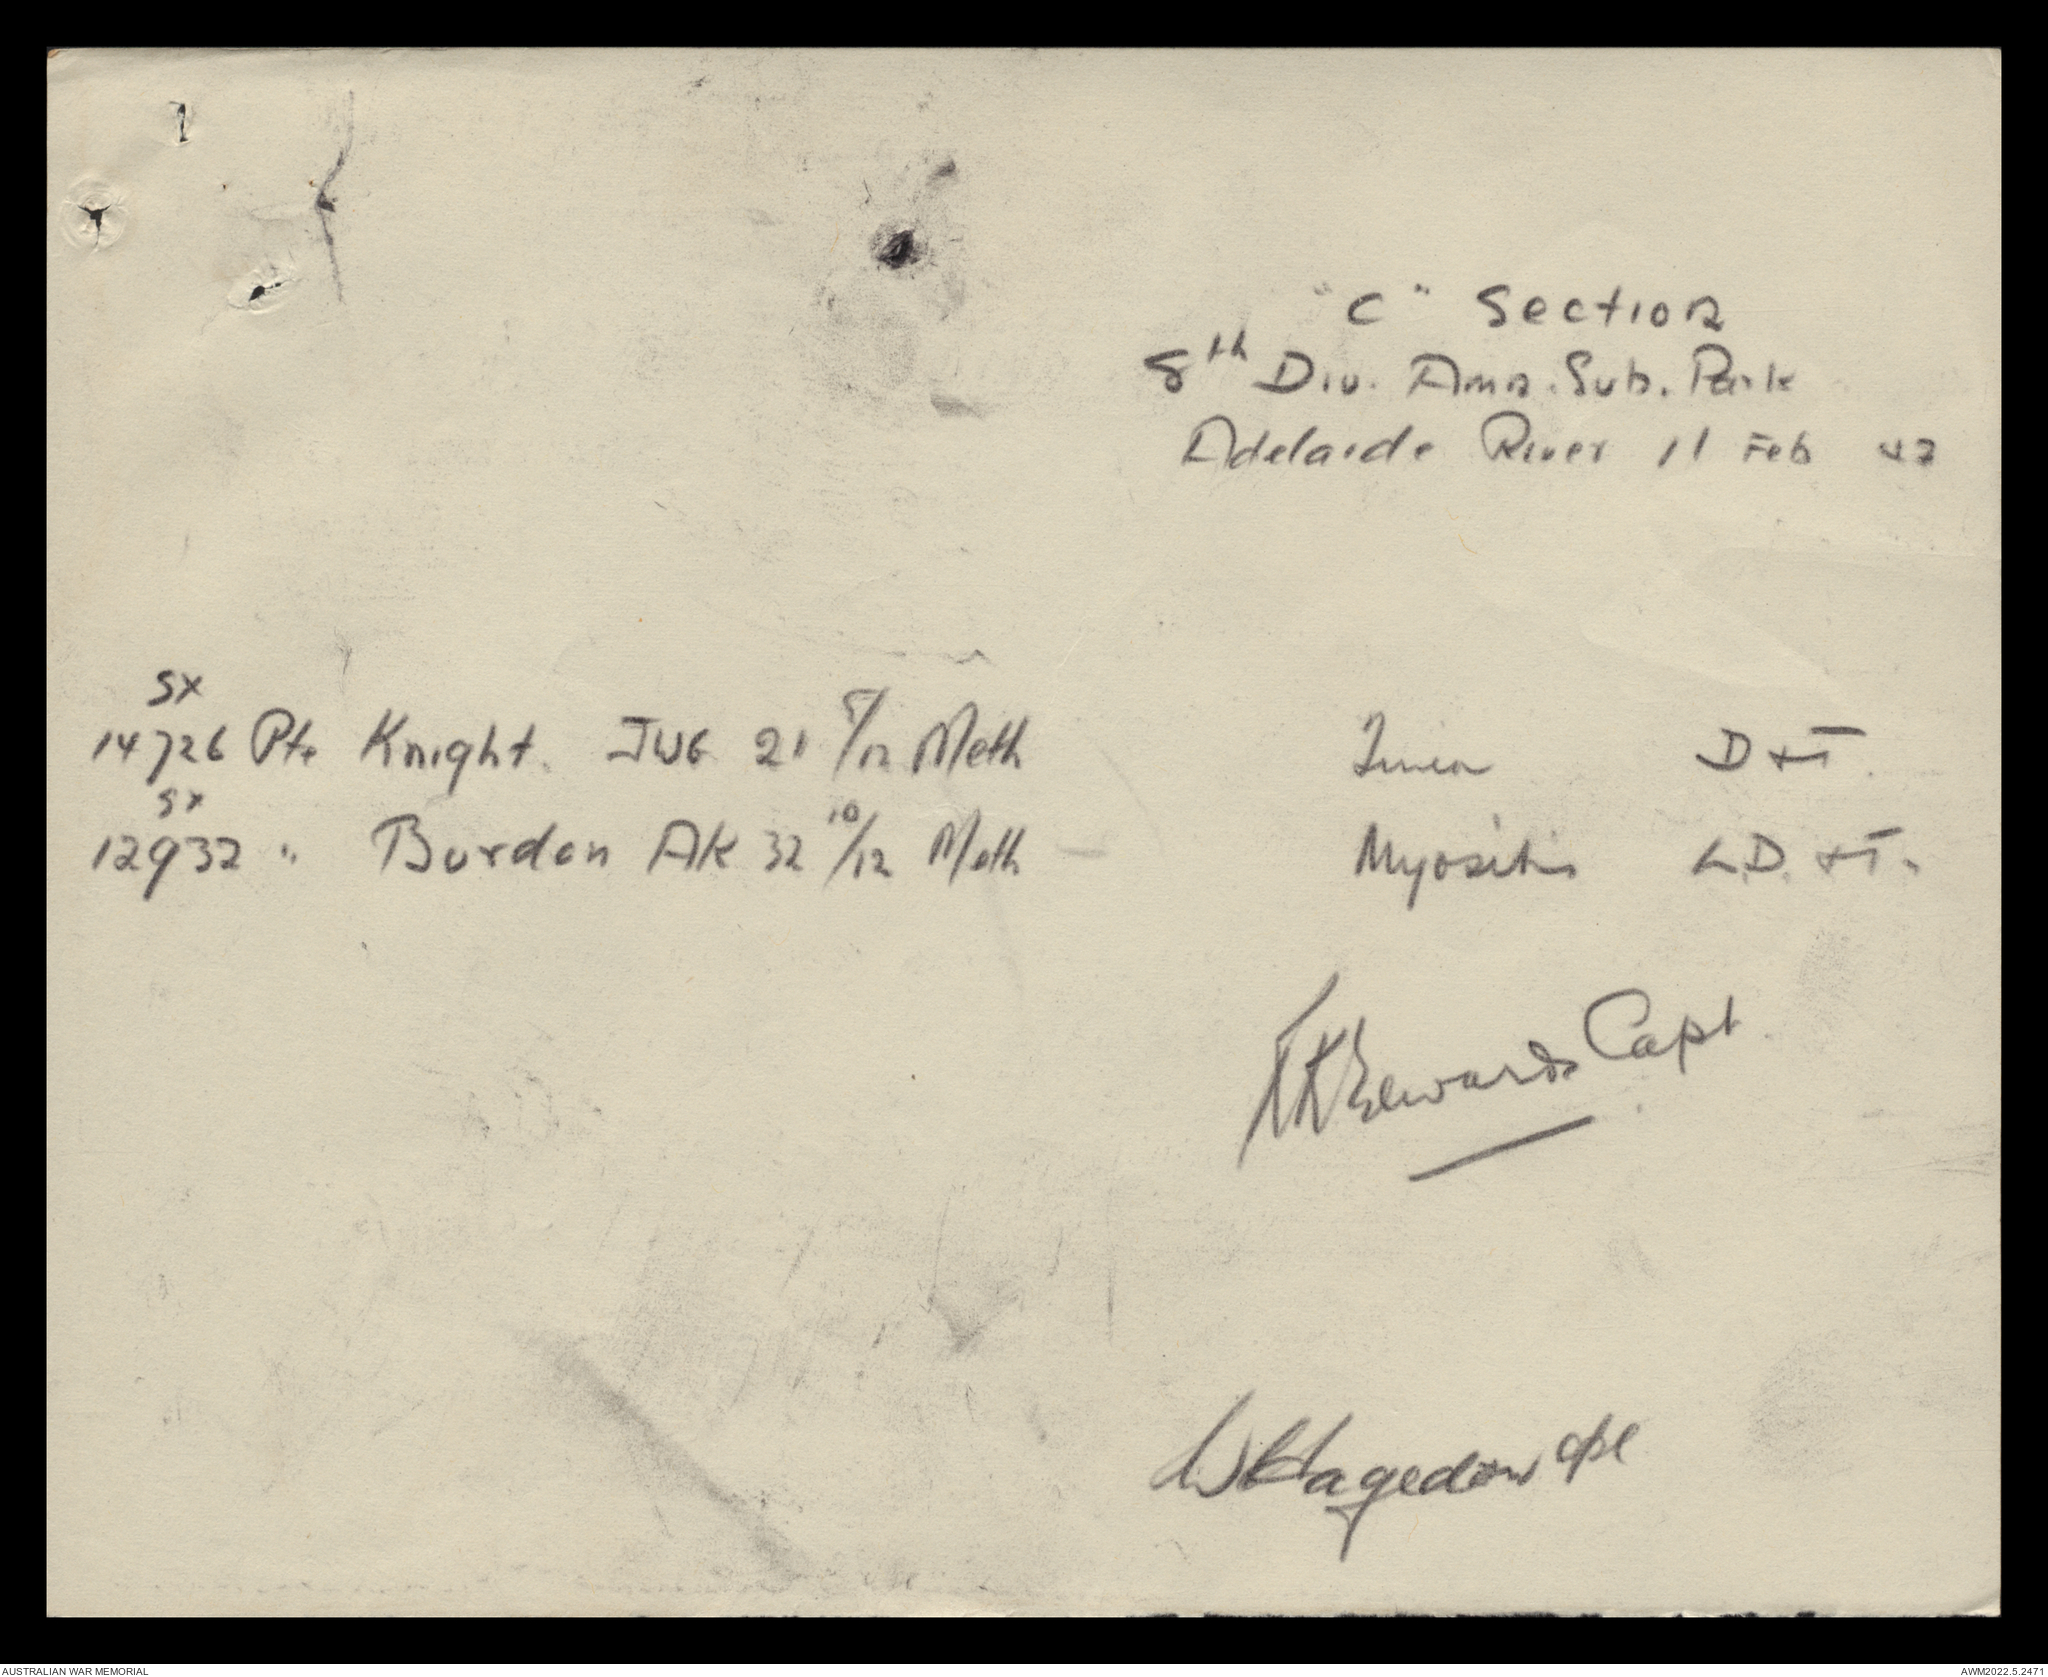 "C" Section
8th Div. Amn. Sub. Park
Adelaide River 11 Feb 42
SX
14726 Pte Knight. JWG 21 5/12 Meth Tinea D + T.
SX
12932 " Burdon AK 32 10/12 Meth - Myositis L.D. + T.
Edwards Capt.
W Hagedorn Cpl
AUSTRALIAN WAR MEMORIAL
AWM2022.5.2471